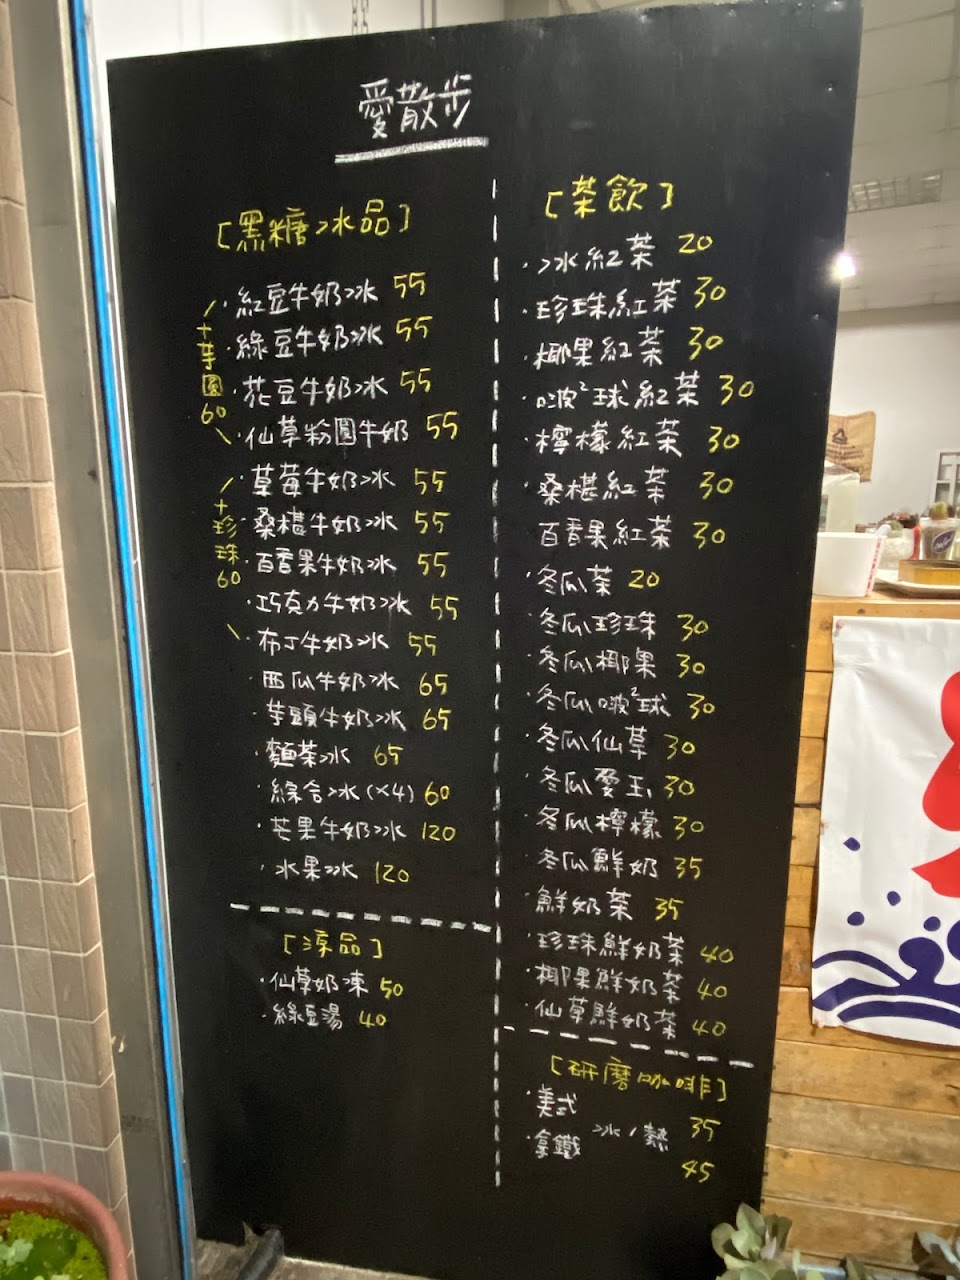 愛散步
[黑糖冰品]
・紅豆牛奶冰 55
・綠豆牛奶冰 55
・花豆牛奶冰 55
・仙草粉圓牛奶 55
+芋圓60
・草莓牛奶冰 55
・桑椹牛奶冰 55
・百香果牛奶冰 55
・巧克力牛奶冰 55
・布丁牛奶冰 55
+珍珠60
・西瓜牛奶冰 65
・芋頭牛奶冰 65
・麵茶冰 65
・綜合冰(×4) 60
・芒果牛奶冰 120
・水果冰 120
[涼品]
・仙草奶凍 50
・綠豆湯 40
[茶飲]
・冰紅茶 20
・珍珠紅茶 30
・椰果紅茶 30
・啵²球紅茶 30
・檸檬紅茶 30
・桑椹紅茶 30
・百香果紅茶 30
・冬瓜茶 20
・冬瓜珍珠 30
・冬瓜椰果 30
・冬瓜啵²球 30
・冬瓜仙草 30
・冬瓜愛玉 30
・冬瓜檸檬 30
・冬瓜鮮奶 35
・鮮奶茶 35
・珍珠鮮奶茶 40
・椰果鮮奶茶 40
・仙草鮮奶茶 40
[研磨咖啡]
・美式 35
冰/熱
・拿鐵 45